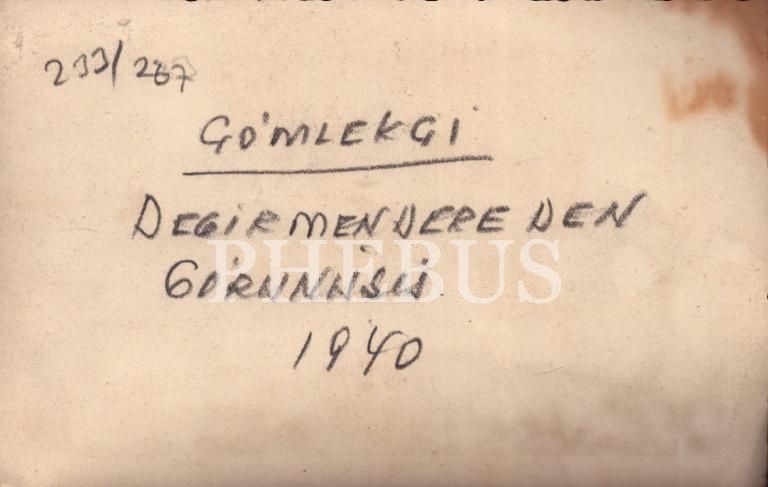 233/287
GÖMLEKÇİ
DEĞİRMENDERE DEN
GÖRÜNÜSÜ
1940
PHEBUS